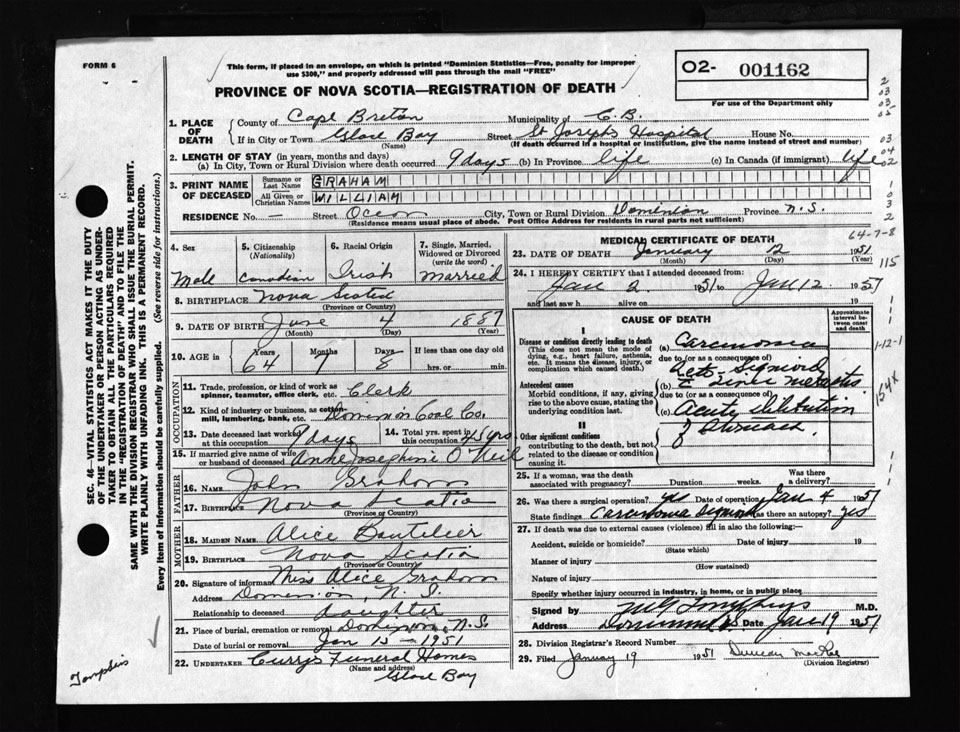 FORM 6
This form, if placed in an envelope, on which is printed "Dominion Statistics—Free, penalty for improper
use $300," and properly addressed will pass through the mail "FREE"
PROVINCE OF NOVA SCOTIA—REGISTRATION OF DEATH
O2- 001162
For use of the Department only
1. PLACE OF DEATH
County of Cape Breton Municipality of C.B.
If in City or Town Glace Bay Street St Josephs Hospital House No.
(Name) (If death occurred in a hospital or institution, give name instead of street and number)
2. LENGTH OF STAY (in years, months and days)
(a) In City, Town or Rural Division where death occurred 9 days (b) In Province life (c) In Canada (if immigrant) life
3. PRINT NAME OF DECEASED
Surname or Last Name GRAHAM
All Given or Christian Names WILLIAM
RESIDENCE No. — Street Ocean City, Town or Rural Division Dominion Province N.S.
(Residence means usual place of abode. Post Office Address for residents in rural parts not sufficient)
4. Sex Male
5. Citizenship (Nationality) Canadian
6. Racial Origin Irish
7. Single, Married, Widowed or Divorced (write the word) Married
8. BIRTHPLACE Nova Scotia
(Province or Country)
9. DATE OF BIRTH June 4 1887
(Month) (Day) (Year)
10. AGE in Years Months Days If less than one day old
64 7 8 hrs. or min.
OCCUPATION
11. Trade, profession, or kind of work as spinner, teamster, office clerk, etc. Clerk
12. Kind of industry or business, as cotton-mill, lumbering, bank, etc. Dominion Coal Co.
13. Date deceased last worked at this occupation 9 days
14. Total yrs. spent in this occupation 45 yrs
15. If married give name of wife or husband of deceased Anne Josephine O'Neil
FATHER
16. NAME John Graham
17. BIRTHPLACE Nova Scotia
(Province or Country)
MOTHER
18. MAIDEN NAME Alice Boutilier
19. BIRTHPLACE Nova Scotia
(Province or Country)
20. Signature of informant Miss Alice Graham
Address Dominion, N.S.
Relationship to deceased daughter
21. Place of burial, cremation or removal Dominion, N.S.
Date of burial or removal Jan 15 - 1951
22. UNDERTAKER Curry's Funeral Homes
(Name and address)
Glace Bay
MEDICAL CERTIFICATE OF DEATH
23. DATE OF DEATH January 12 1951
(Month) (Day) (Year)
24. I HEREBY CERTIFY that I attended deceased from:
Jan 2 1951 to Jan 12 1951
and last saw h alive on 19
CAUSE OF DEATH
Approximate interval between onset and death
I
Disease or condition directly leading to death
(This does not mean the mode of dying, e.g., heart failure, asthenia, etc. It means the disease, injury, or complication which caused death.)
(a) Carcinoma
due to (or as a consequence of)
Antecedent causes
Morbid conditions, if any, giving rise to the above cause, stating the underlying condition last.
(b)
due to (or as a consequence of)
(c) Acute Dilitation
II
Other significant conditions
contributing to the death, but not related to the disease or condition causing it.
of Stomach
25. If a woman, was the death associated with pregnancy? Duration weeks. Was there a delivery?
26. Was there a surgical operation? yes Date of operation Jan 4 1951
State findings Carcinoma Sigmoid Was there an autopsy? yes
27. If death was due to external causes (violence) fill in also the following:
Accident, suicide or homicide? Date of injury 19
(State which)
Manner of injury
(How sustained)
Nature of injury
Specify whether injury occurred in industry, in home, or in public place
Signed by M.D.
Address Dominion N.S. Date Jan 19 1951
28. Division Registrar's Record Number
29. Filed January 19 1951 Duncan MacRae
(Division Registrar)
SEC. 46—VITAL STATISTICS ACT MAKES IT THE DUTY
OF THE UNDERTAKER OR PERSON ACTING AS UNDER-
TAKER TO OBTAIN ALL THE PARTICULARS REQUIRED
IN THE "REGISTRATION OF DEATH" AND TO FILE THE
SAME WITH THE DIVISION REGISTRAR WHO SHALL ISSUE THE BURIAL PERMIT.
WRITE PLAINLY WITH UNFADING INK. THIS IS A PERMANENT RECORD.
Every item of Information should be carefully supplied. (See reverse side for instructions.)
Tompkins
2
03
03
05
03
04
02
1
0
3
2
64-7-8
115
1-12-1
154x